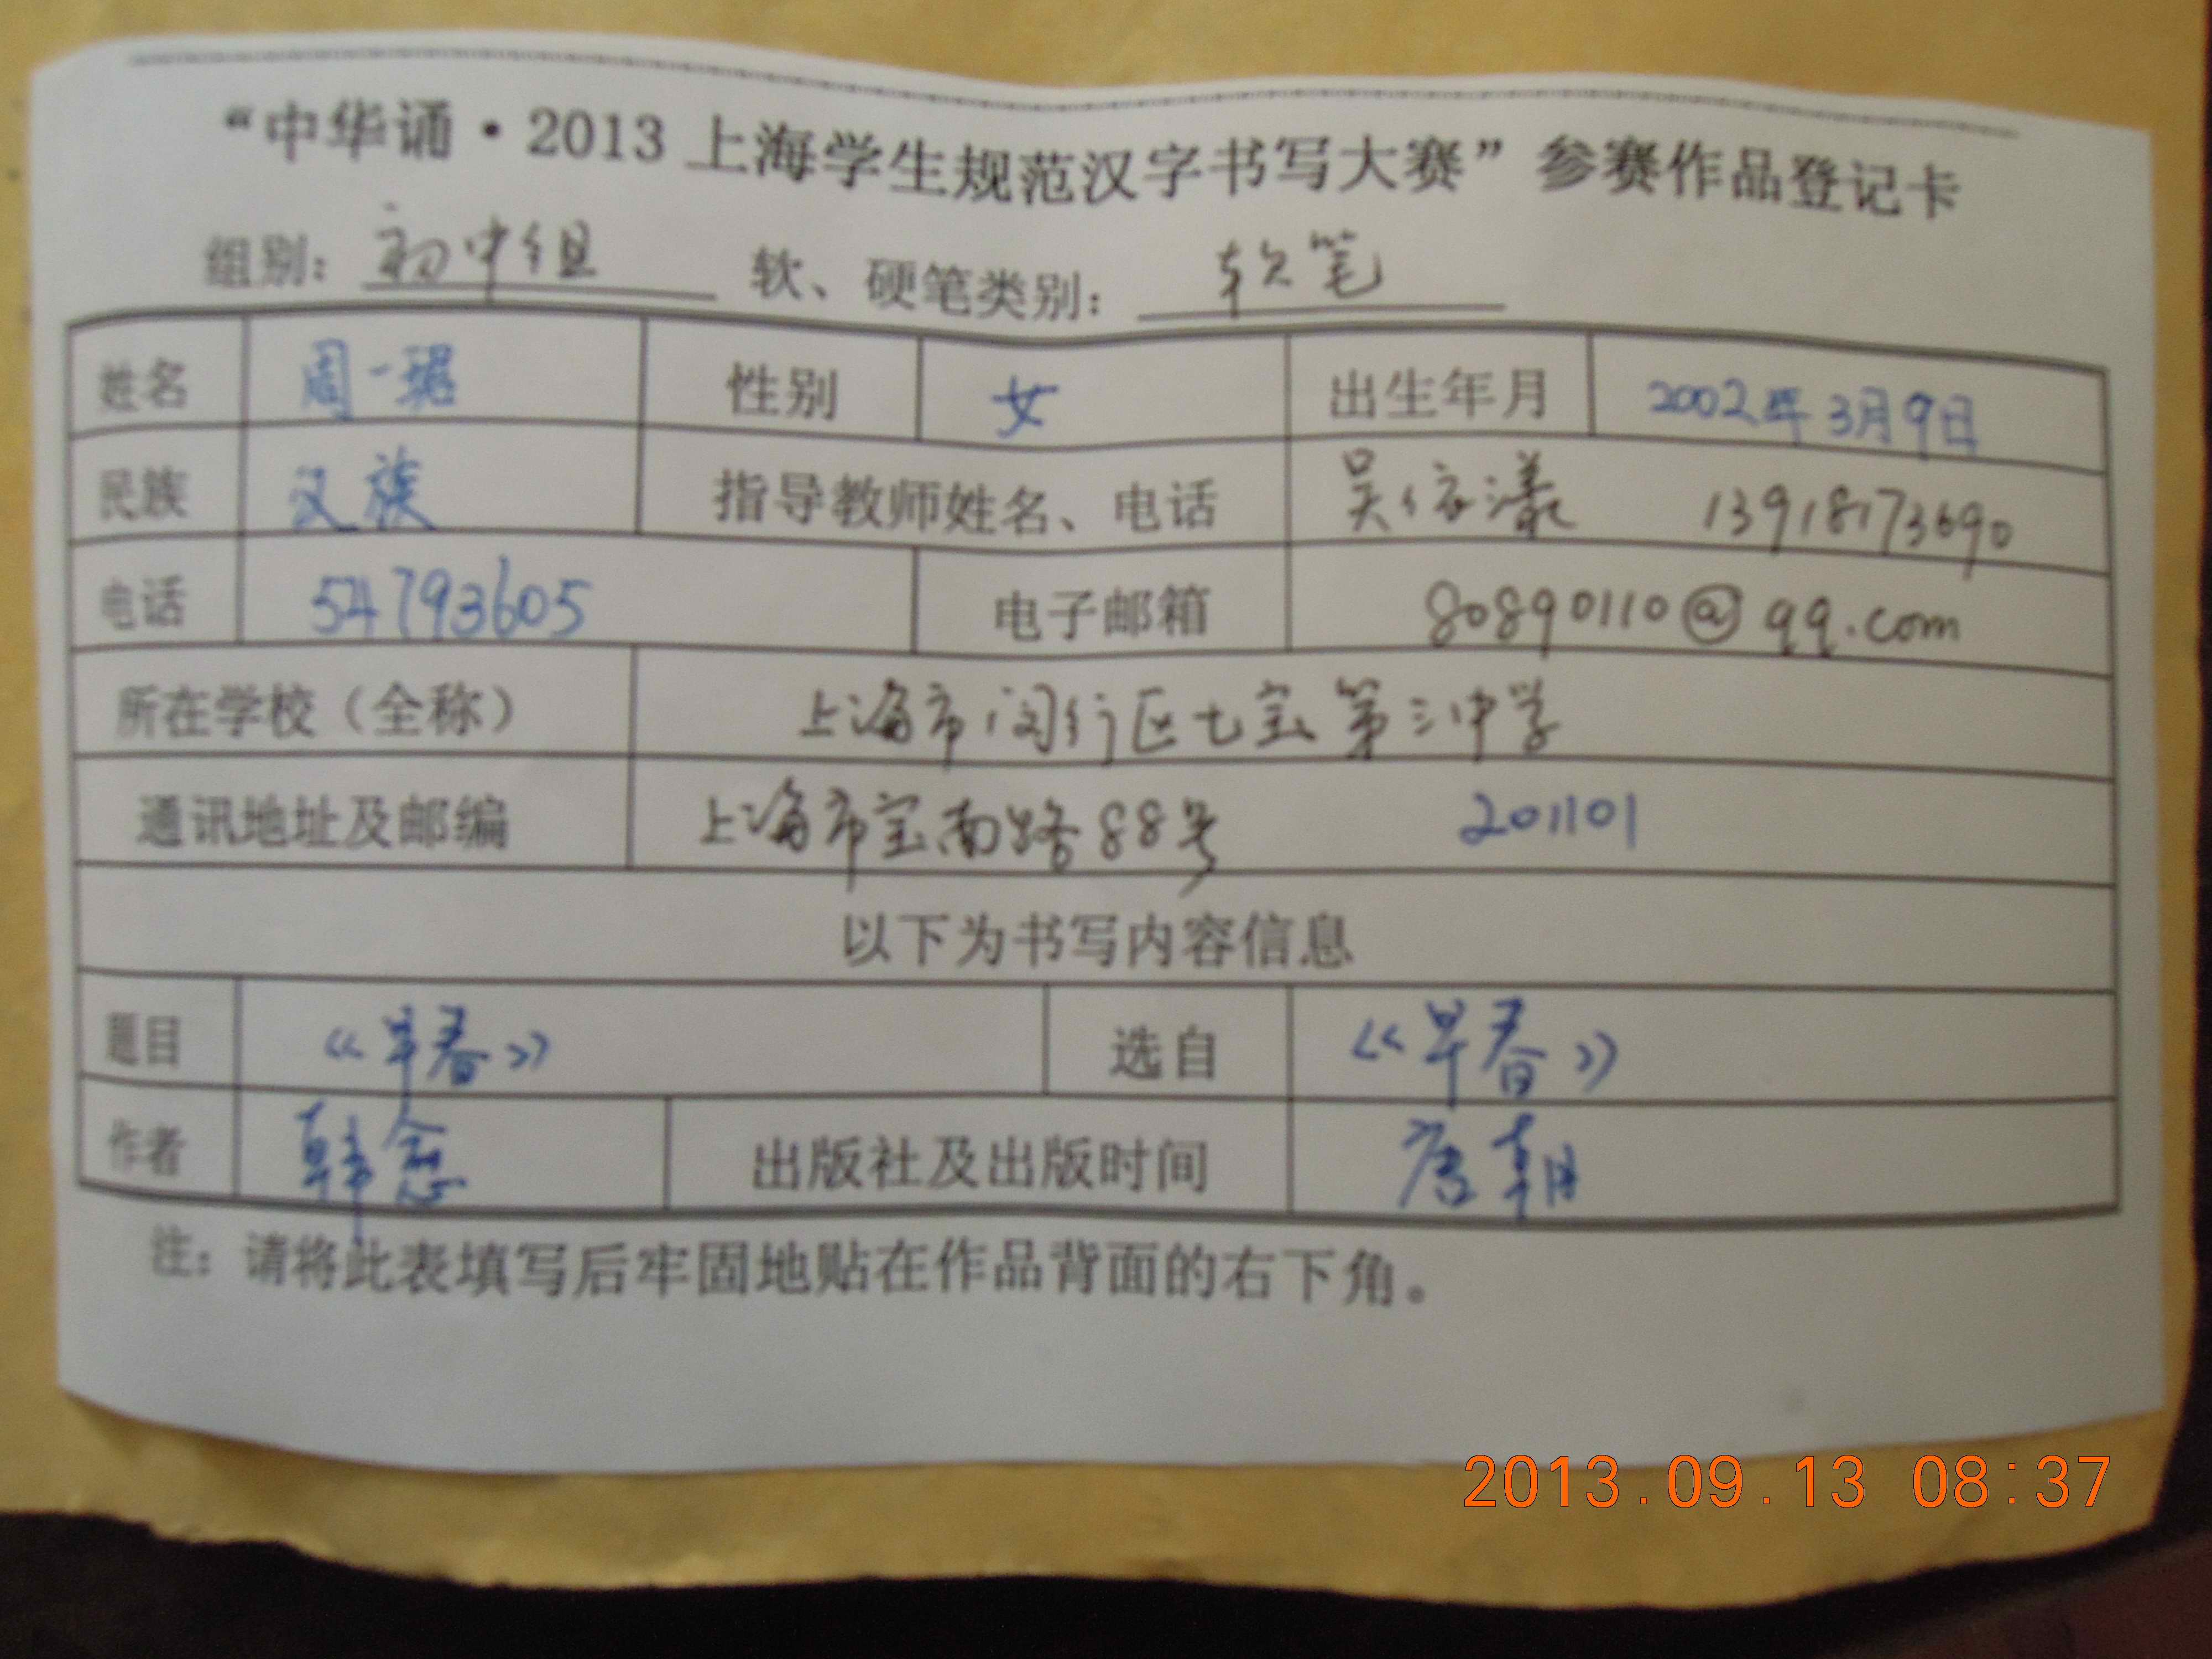 “中华诵·2013上海学生规范汉字书写大赛”参赛作品登记卡
组别：初中组 软、硬笔类别：软笔
姓名 周一琚 性别 女 出生年月 2002年3月9日
民族 汉族 指导教师姓名、电话 吴依漾 13918173690
电话 54793605 电子邮箱 80890110@qq.com
所在学校（全称） 上海市闵行区七宝第三中学
通讯地址及邮编 上海市宝南路88号 201101
以下为书写内容信息
题目 《早春》 选自 《早春》
作者 韩愈 出版社及出版时间 唐朝
注：请将此表填写后牢固地贴在作品背面的右下角。
2013.09.13 08:37